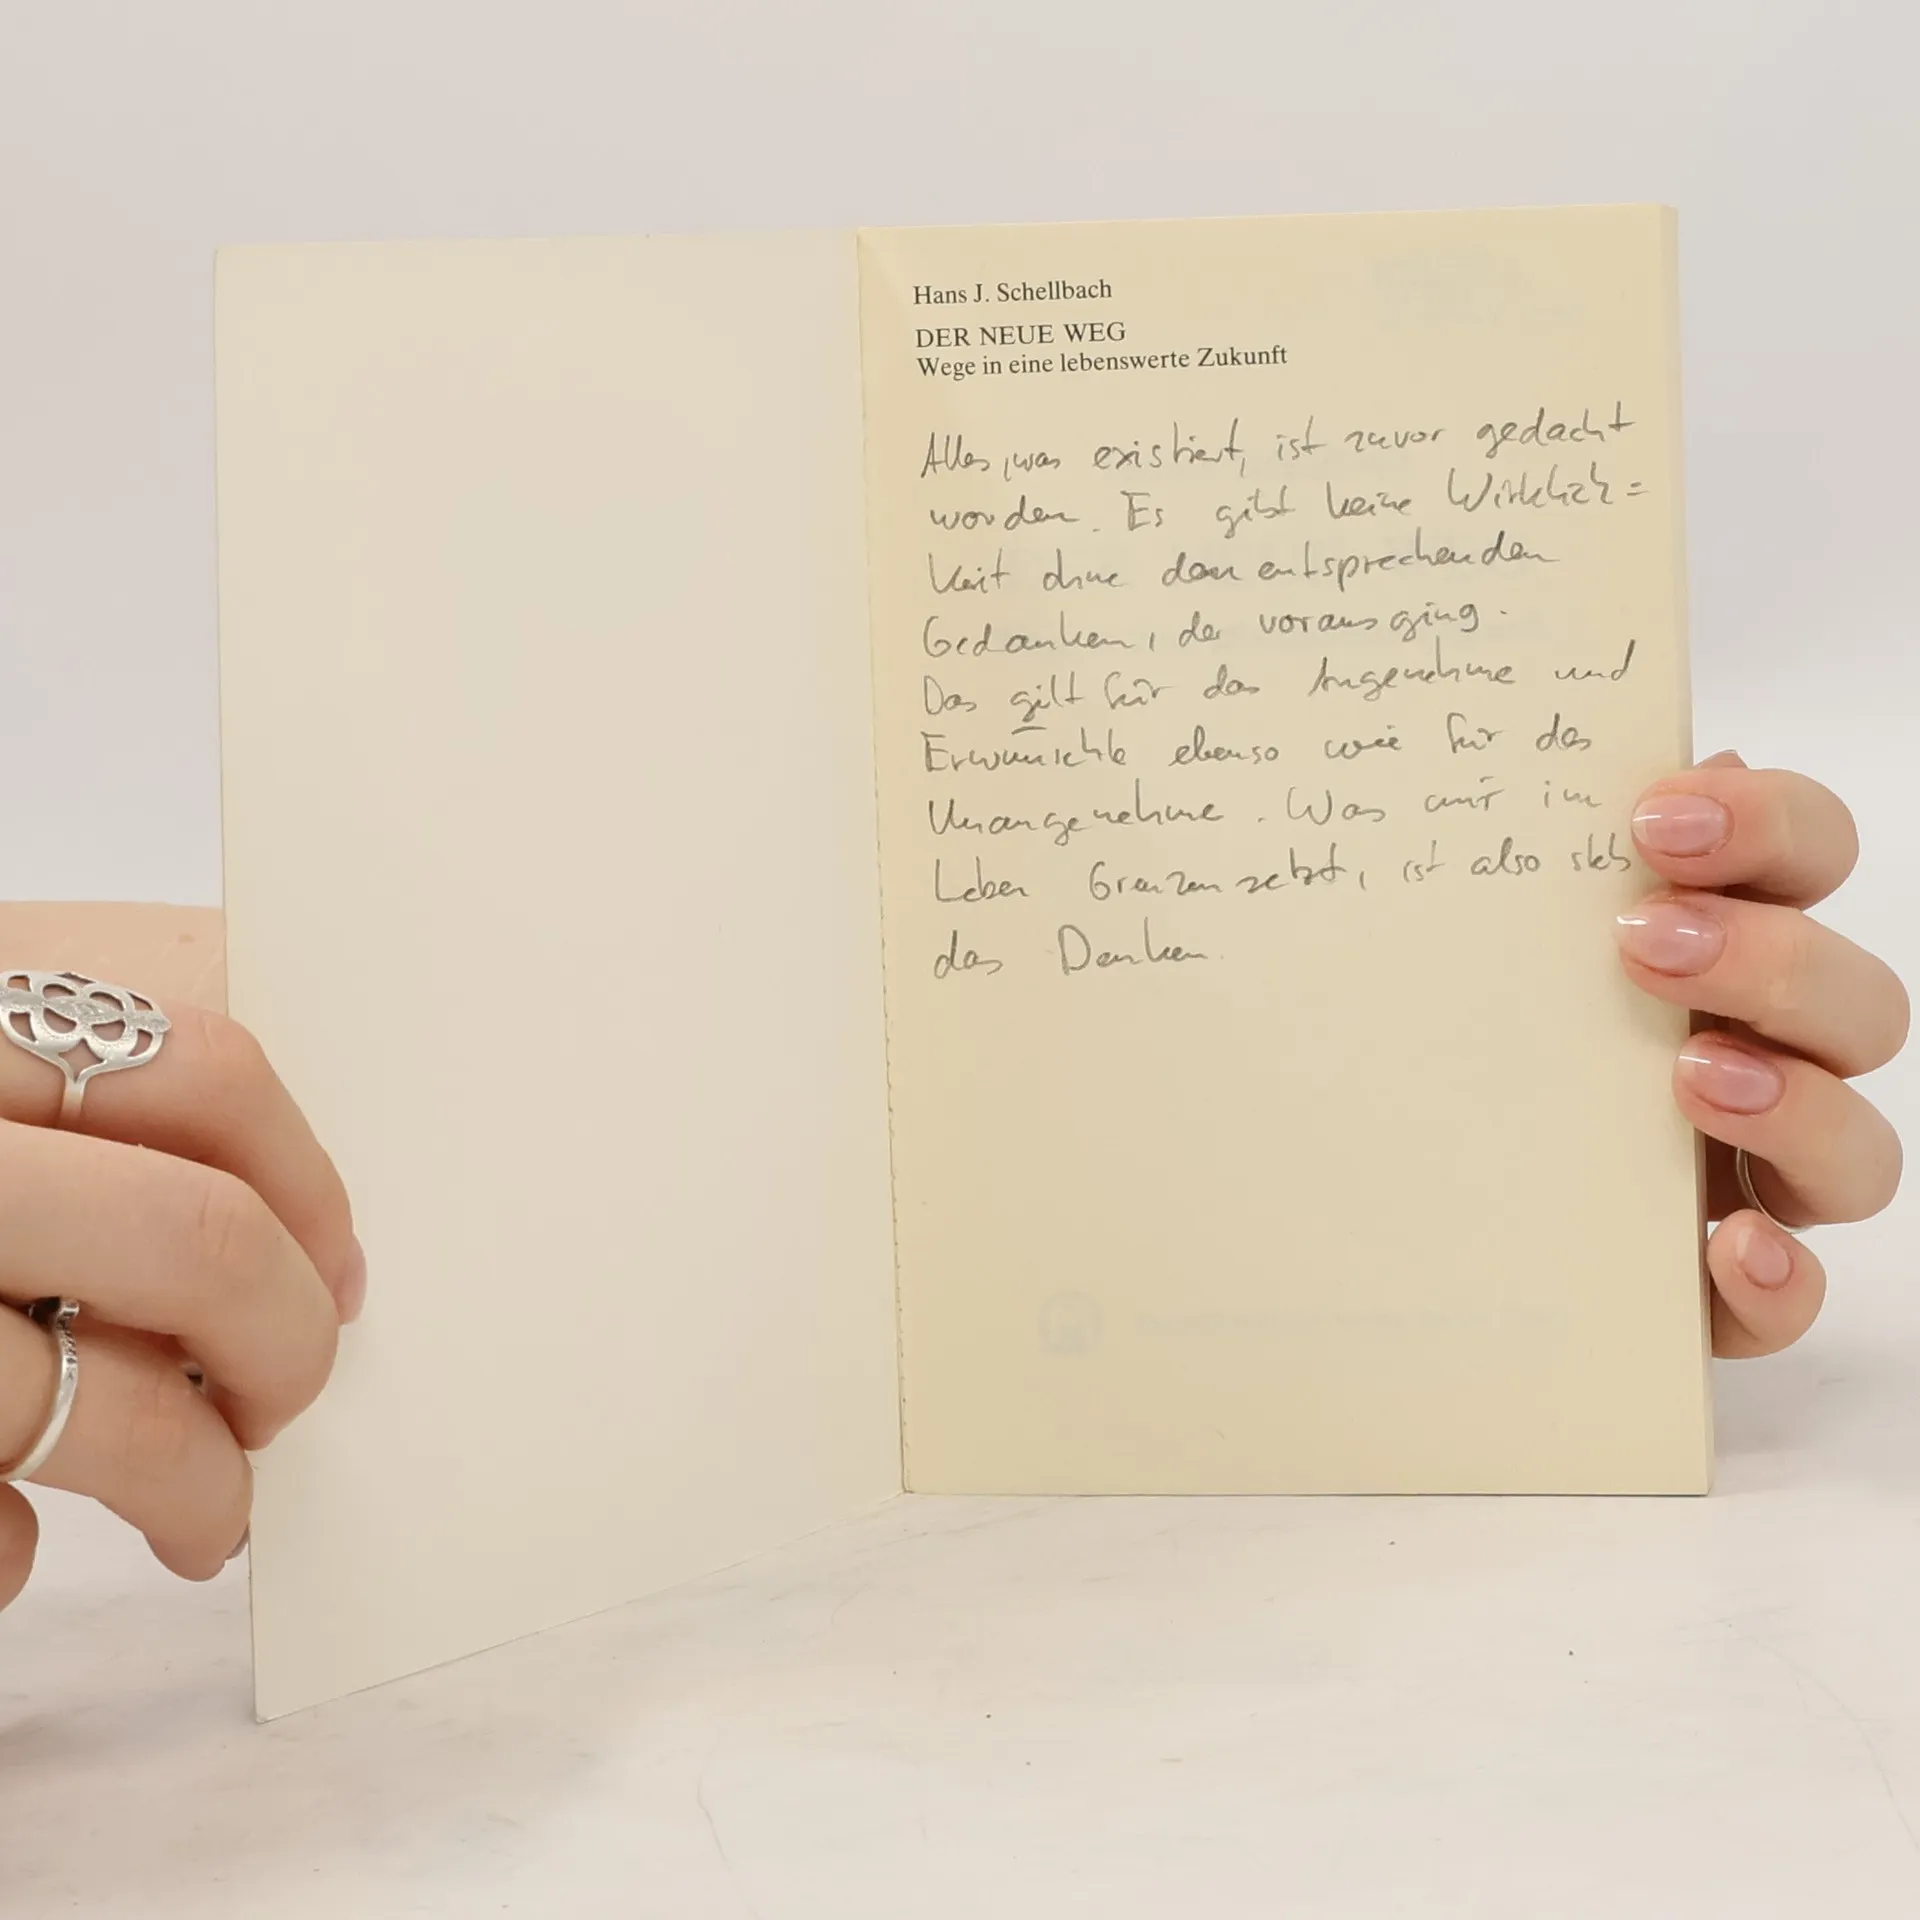 Hans J. Schellbach
DER NEUE WEG
Wege in eine lebenswerte Zukunft
Alles, was existiert, ist zuvor gedacht
worden. Es gibt keine Wirklich=
keit ohne den entsprechenden
Gedanken, der vorausging.
Das gilt für das Angenehme und
Erwünschte ebenso wie für das
Unangenehme. Was mir im
Leben Grenzen setzt, ist also stets
das Denken.